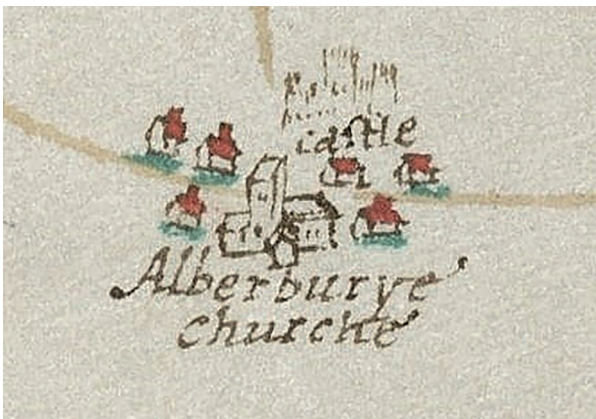 castle
Alberburye
churche